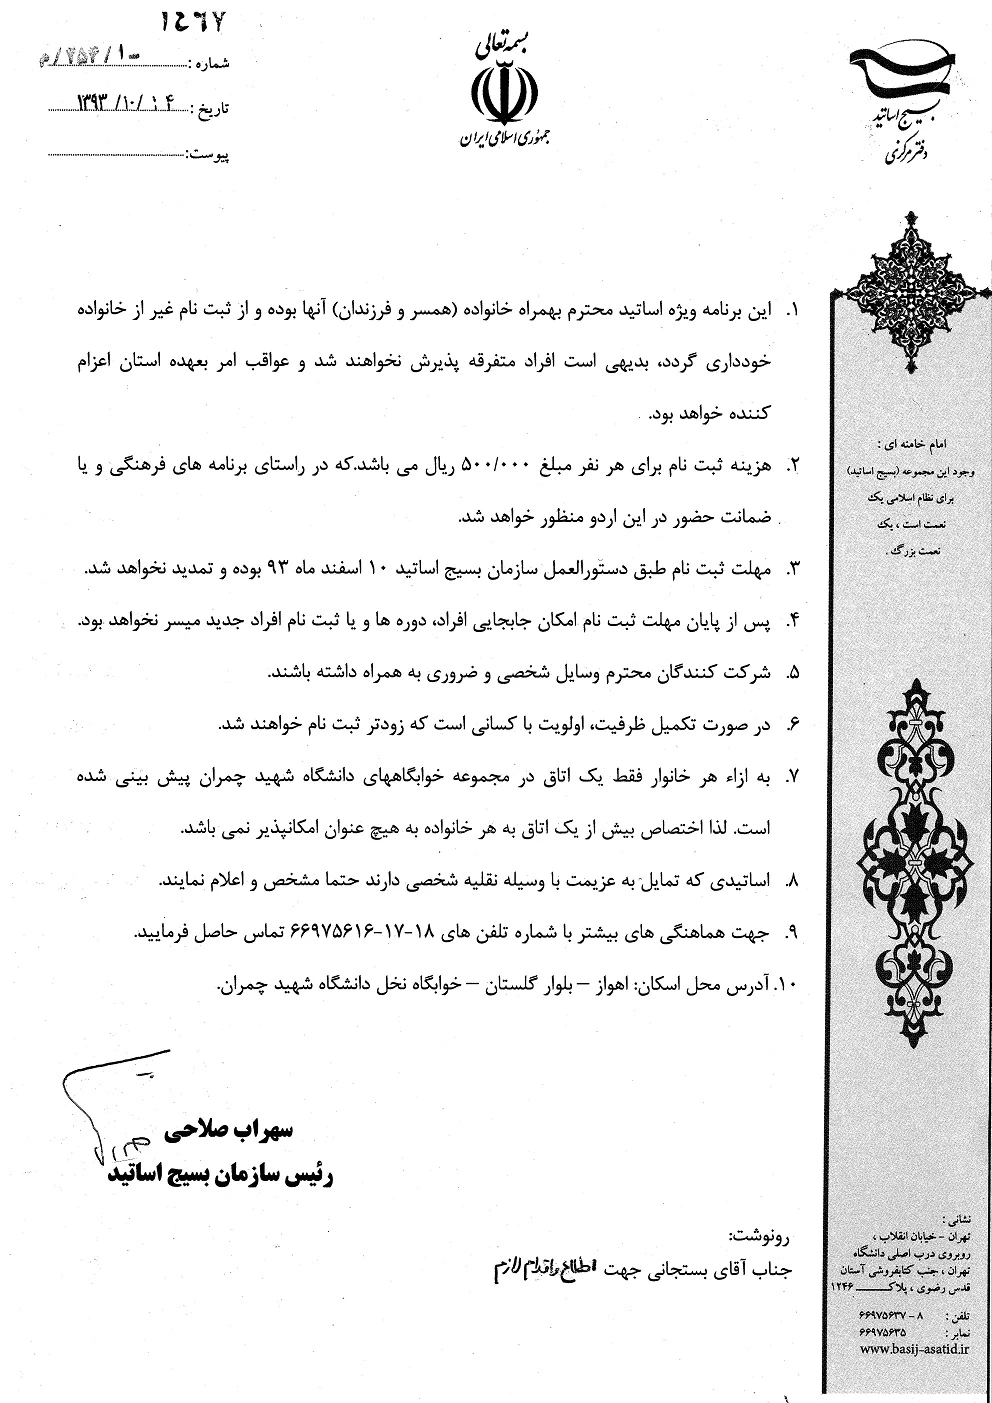 ۱۴۶۷
بسمه تعالی
جمهوری اسلامی ایران
شماره :
تاریخ : ۱۳۹۳/۱۰/۱۴
پیوست:
بسیج اساتید
دفتر مرکزی
۱. این برنامه ویژه اساتید محترم بهمراه خانواده (همسر و فرزندان) آنها بوده و از ثبت نام غیر از خانواده
خودداری گردد، بدیهی است افراد متفرقه پذیرش نخواهند شد و عواقب امر بعهده استان اعزام
کننده خواهد بود.
۲. هزینه ثبت نام برای هر نفر مبلغ ۵۰۰/۰۰۰ ریال می باشد.که در راستای برنامه های فرهنگی و یا
ضمانت حضور در این اردو منظور خواهد شد.
۳. مهلت ثبت نام طبق دستورالعمل سازمان بسیج اساتید ۱۰ اسفند ماه ۹۳ بوده و تمدید نخواهد شد.
۴. پس از پایان مهلت ثبت نام امکان جابجایی افراد، دوره ها و یا ثبت نام افراد جدید میسر نخواهد بود.
۵. شرکت کنندگان محترم وسایل شخصی و ضروری به همراه داشته باشند.
۶. در صورت تکمیل ظرفیت، اولویت با کسانی است که زودتر ثبت نام خواهند شد.
۷. به ازاء هر خانوار فقط یک اتاق در مجموعه خوابگاههای دانشگاه شهید چمران پیش بینی شده
است. لذا اختصاص بیش از یک اتاق به هر خانواده به هیچ عنوان امکانپذیر نمی باشد.
۸. اساتیدی که تمایل به عزیمت با وسیله نقلیه شخصی دارند حتما مشخص و اعلام نمایند.
۹. جهت هماهنگی های بیشتر با شماره تلفن های ۱۸-۱۷-۶۶۹۷۵۶۱۶ تماس حاصل فرمایید.
۱۰. آدرس محل اسکان: اهواز – بلوار گلستان – خوابگاه نخل دانشگاه شهید چمران.
سهراب صلاحی
رئیس سازمان بسیج اساتید
رونوشت:
جناب آقای بستجانی جهت اطلاع و اقدام لازم
امام خامنه ای :
وجود این مجموعه (بسیج اساتید)
برای نظام اسلامی یک
نعمت است ، یک
نعمت بزرگ .
نشانی :
تهران – خیابان انقلاب ،
روبروی درب اصلی دانشگاه
تهران ، جنب کتابفروشی آستان
قدس رضوی ، پلاک ۱۲۴۶
تلفن : ۸ – ۶۶۹۷۵۶۳۷
نمابر : ۶۶۹۷۵۶۳۵
www.basij-asatid.ir